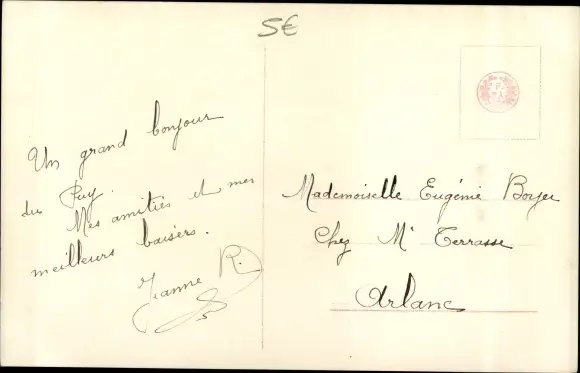 5€
Un grand bonjour
du Puy.
Mes amitiés et mes
meilleurs baisers.
Jeanne R.
Mademoiselle Eugénie Boyer
Chez Mr Terrasse
Arlanc